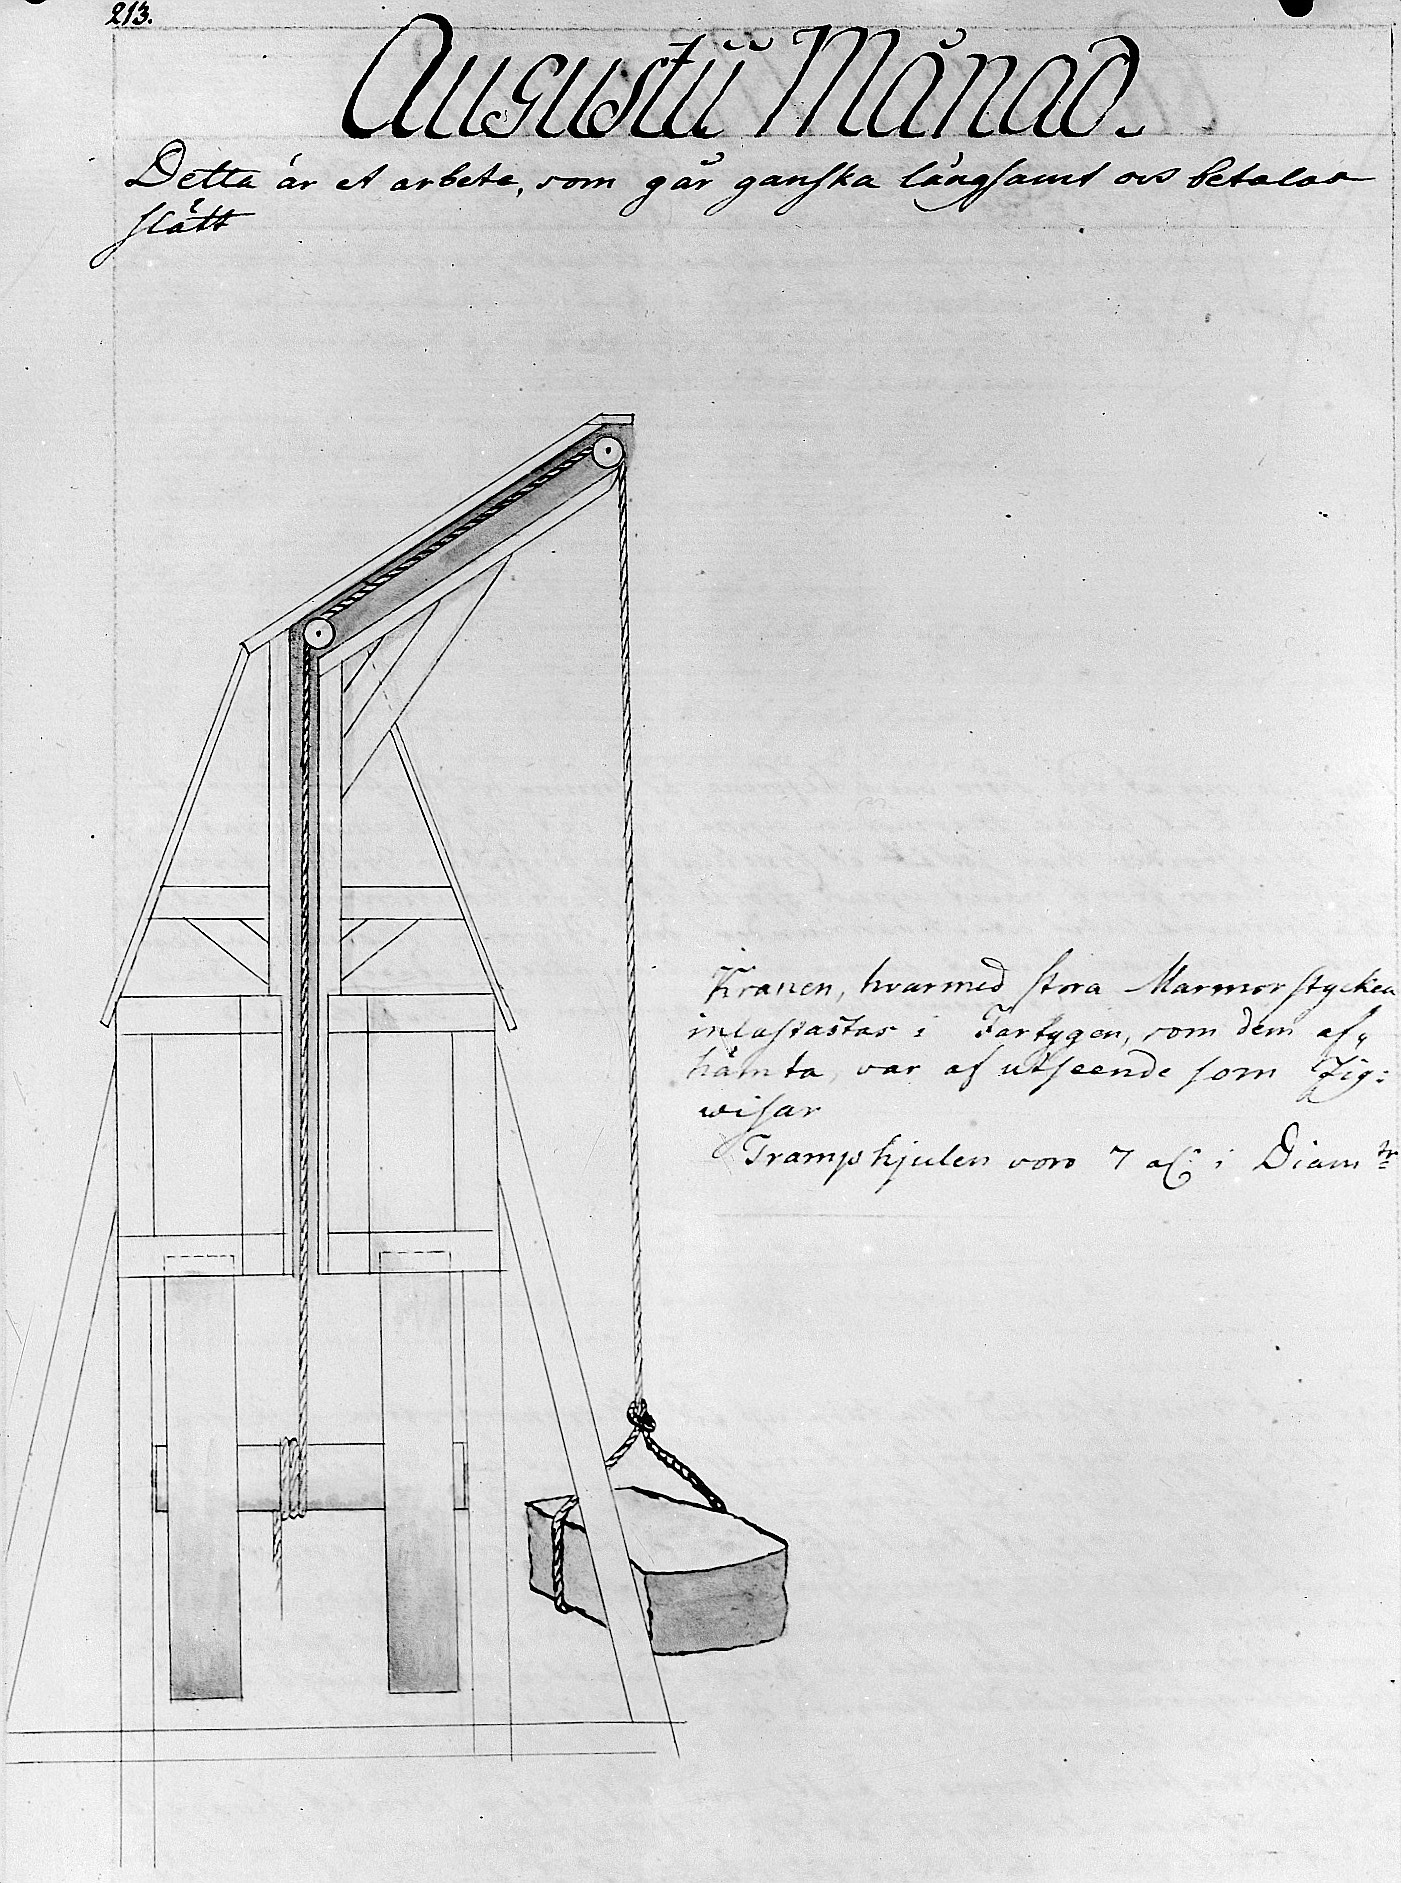 213.
Augustii Månad.
Detta är et arbete, som går ganska långsamt ocs betalas
slätt
Kranen, hvarmed stora Marmorstycken
inlastastas i Fartygen, som dem af„
hämta, var af utseende som Fig:
wisar
Trampshjulen voro 7 al: i Diam tr